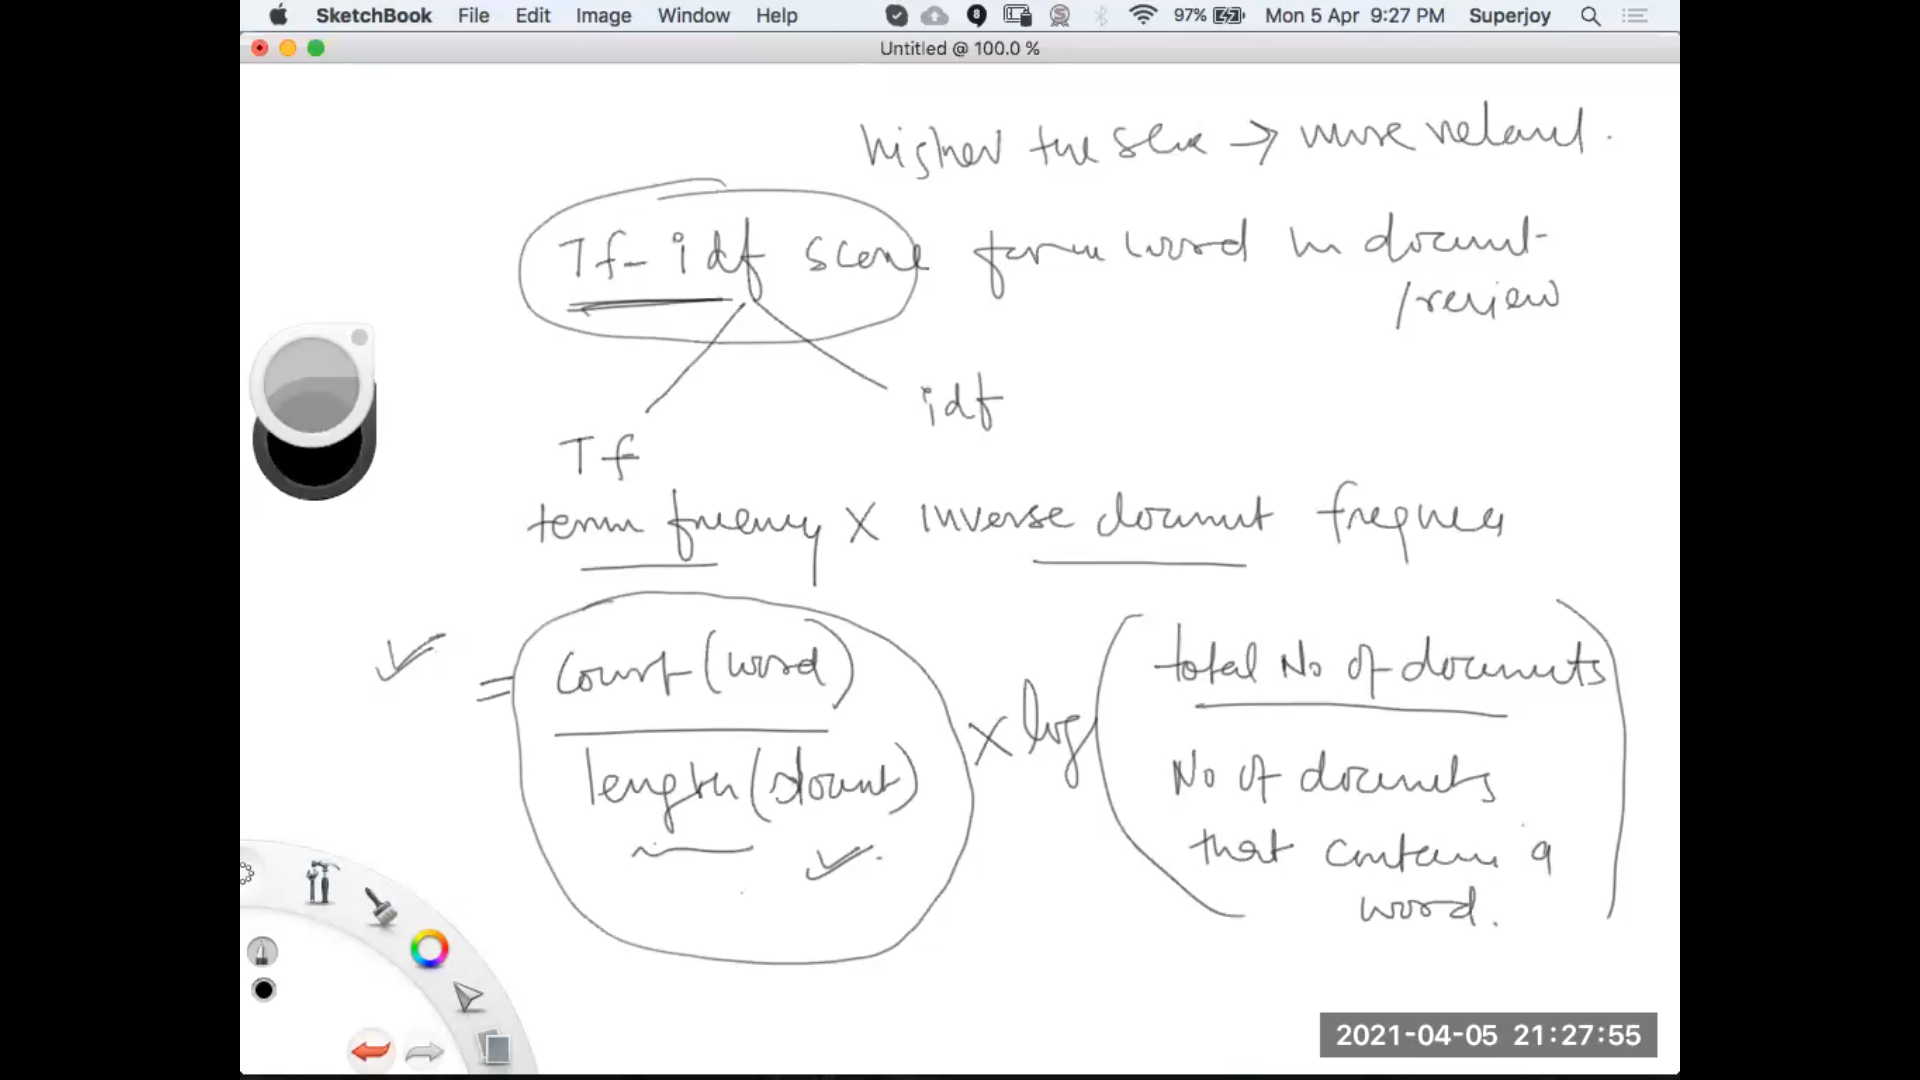 SketchBook File Edit Image Window Help 8 S 97% Mon 5 Apr 9:27 PM Superjoy
Untitled @ 100.0 %
higher the score → more relevant.
Tf-idf score for a word in document
/review
idf
Tf
term frequency X inverse document frequency
= count(word) x log total No of documents
length(document) No of documents
that contain a
word.
2021-04-05 21:27:55